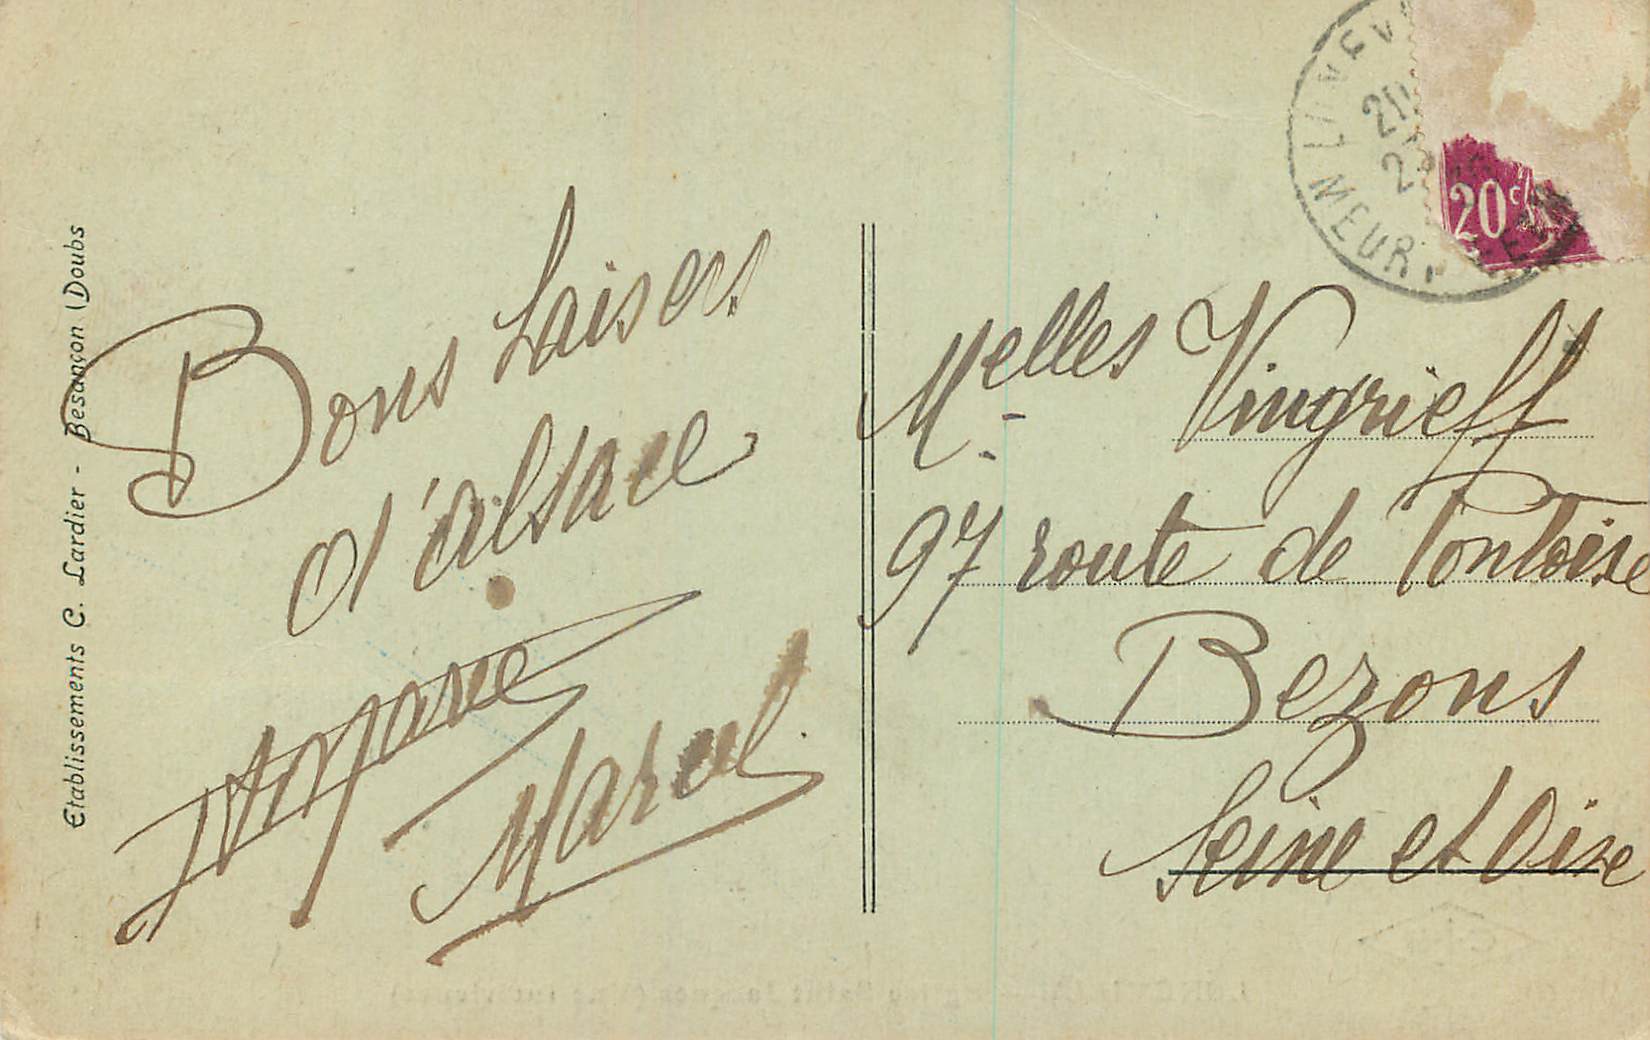 Etablissements C. Lardier - Besançon (Doubs
Bons baisers
d'alsace
Marcel
LUNEV
MEUR
20c
Melles Vingrieff
97 route de Pontoise
Bezons
Seine et Oise